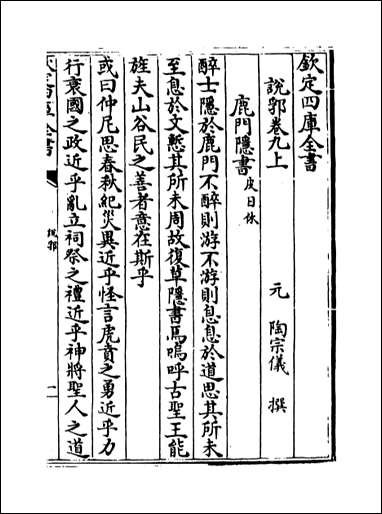 欽定四庫全書
說郛卷九上
元 陶宗儀 撰
鹿門隱書 皮日休
醉士隱於鹿門不醉則游不游則息息於道思其所未
至息於文慙其所未周故復草隱書焉嗚呼古聖王能
旌夫山谷民之善者意在斯乎
或曰仲尼思春秋紀災異近乎怪言虎賁之勇近乎力
行衰國之政近乎亂立祠祭之禮近乎神將聖人之道
說郛
一